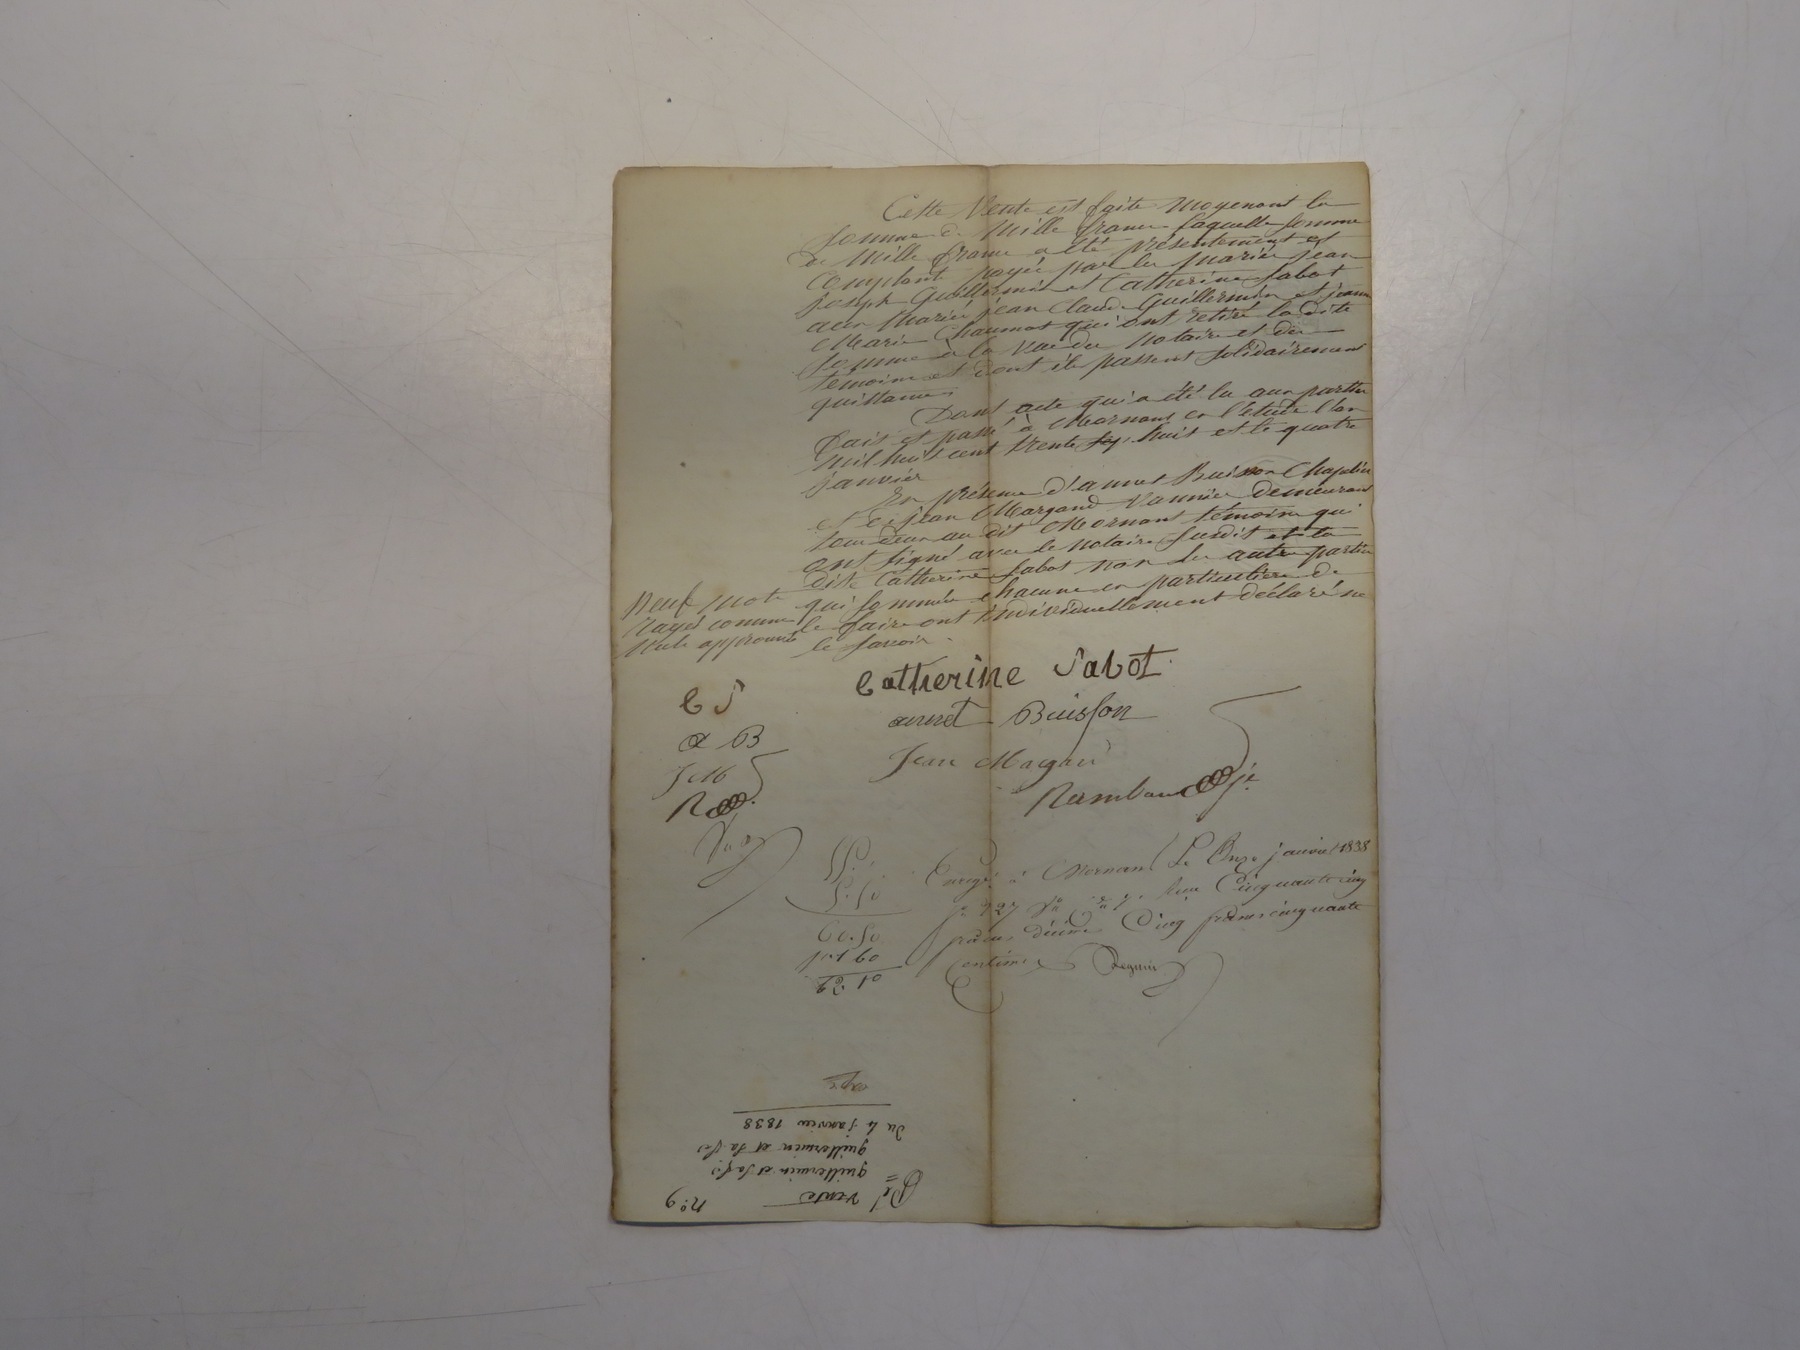 Cette Vente est faite Moyenant la
Somme de Mille francs laquelle Somme
de Mille francs a été présentement et
Comptant payée par les mariés jean
joseph Guillermin et Catherine Sabot
aux Mariés jean Claude Guillermin et jeanne
Marie Chaumat qui ont retiré la dite
Somme à la vue du Notaire et des
témoins et dont ils passent Solidairement
quittance
Dont acte qui a été lu aux parties
fait et passé à Mornant en l'étude l'an
Mil huit cent trente sept huit et le quatre
janvier
En présence d'annet Buisson Chapelier
et de jean Margand Vannier demeurant
tous deux au dit Mornant témoins qui
ont signé avec le notaire Susdit et la
dite Catherine Sabot non les autres parties
qui Sommées chacune en particulière de
le faire ont individuellement déclaré ne
le Savoir.
Neuf Mots
Rayés comme
Nuls approuvés
Catherine Sabot.
C S
annet Buisson
a B
Jean Magan
J M
R
Enregé à Mornant Le Onze janvier 1838
fo 127 Vo Reçu Cinquante cinq
francs décime Cinq francs cinquante
Centimes
55.
5.50
60.50
no 9
vente
guillermin et sa fe
guillermin et sa fe
du 4 janvier 1838